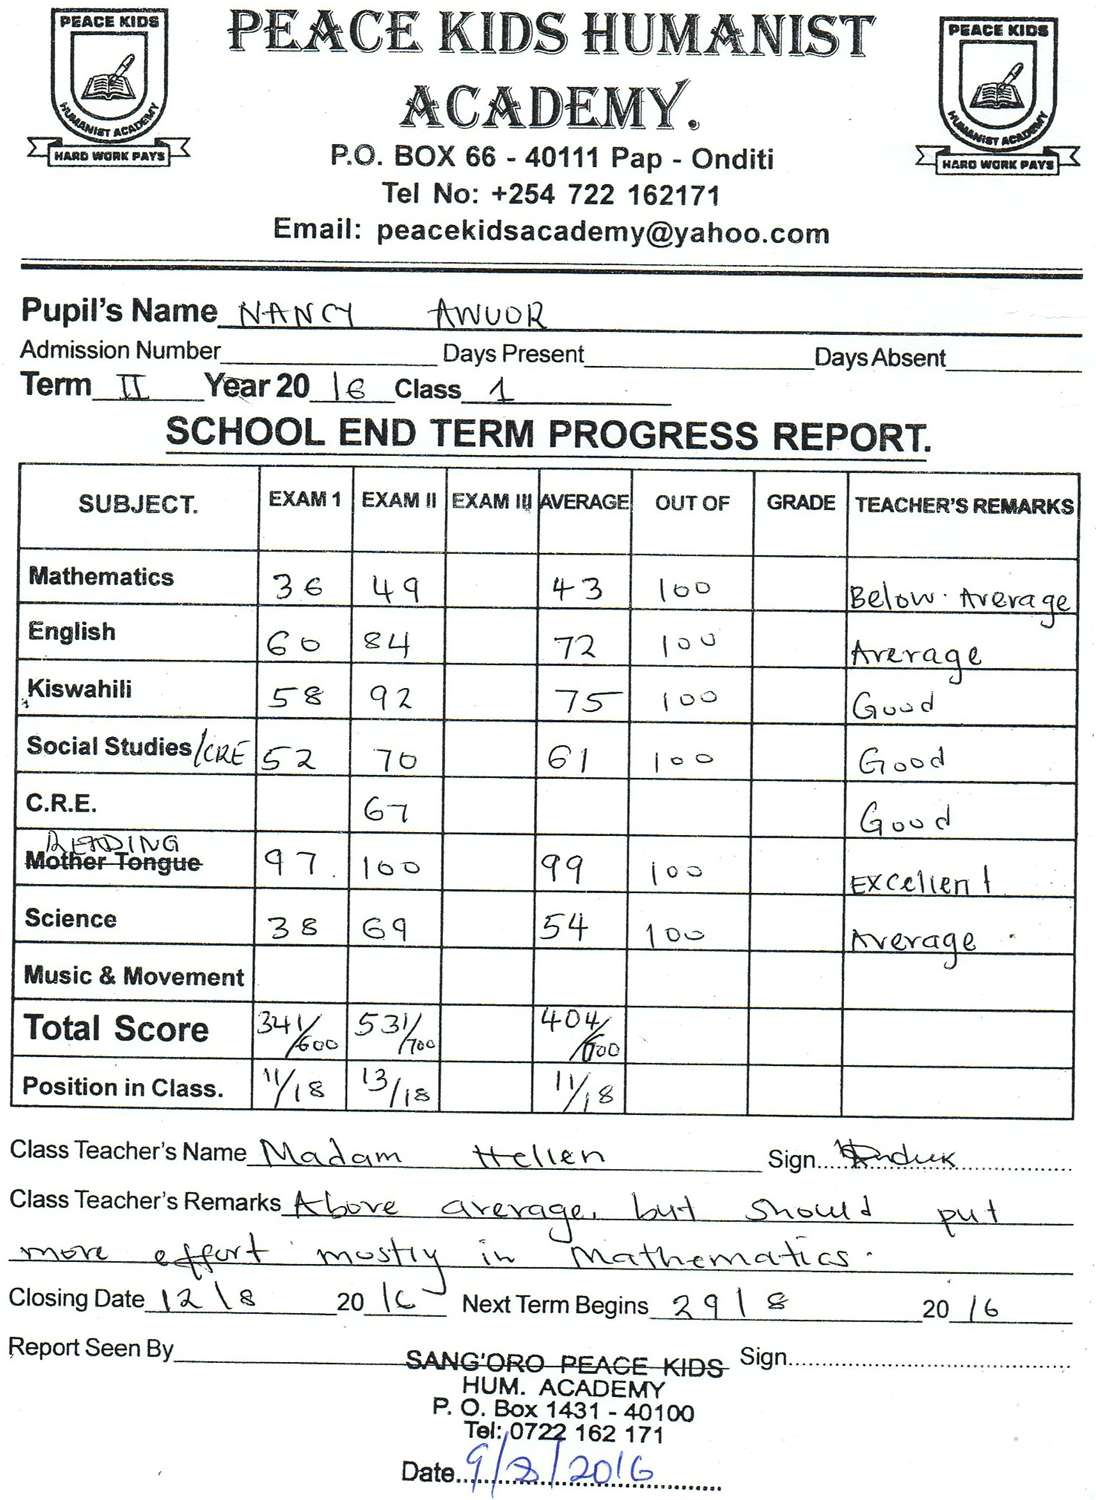 PEACE KIDS
HUMANIST ACADEMY
HARD WORK PAYS
PEACE KIDS HUMANIST
ACADEMY.
PEACE KIDS
HUMANIST ACADEMY
HARD WORK PAYS
P.O. BOX 66 - 40111 Pap - Onditi
Tel No: +254 722 162171
Email: peacekidsacademy@yahoo.com
Pupil's Name NANCY AWUOR
Admission Number Days Present Days Absent
Term II Year 20 16 Class 1
SCHOOL END TERM PROGRESS REPORT.
SUBJECT. EXAM 1 EXAM II EXAM III AVERAGE OUT OF GRADE TEACHER'S REMARKS
Mathematics 36 49 43 100 Below Average
English 60 84 72 100 Average
Kiswahili 58 92 75 100 Good
Social Studies/CRE 52 70 61 100 Good
C.R.E. 67 Good
READING
Mother Tongue 97 100 99 100 Excellent
Science 38 69 54 100 Average
Music & Movement
Total Score 341/600 531/700 404/600
Position in Class. 11/18 13/18 11/18
Class Teacher's Name Madam Hellen Sign
Class Teacher's Remarks Above average, but should put
more effort mostly in Mathematics.
Closing Date 12/8 2016 Next Term Begins 29/8 2016
Report Seen By SANG'ORO PEACE KIDS Sign
HUM. ACADEMY
P. O. Box 1431 - 40100
Tel: 0722 162 171
Date 9/8/2016